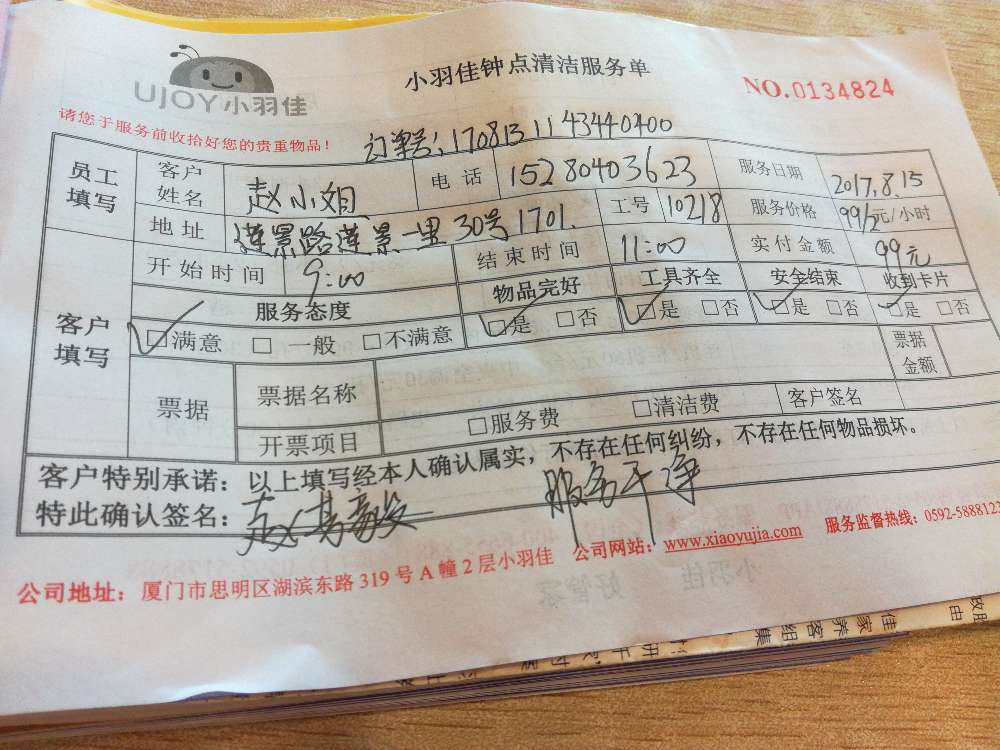 UJOY小羽佳
小羽佳钟点清洁服务单
NO.0134824
请您于服务前收拾好您的贵重物品！
订单号：1708131143440400
员工填写 客户姓名 赵小姐 电话 15280403623 服务日期 2017.8.15
地址 莲景路莲景一里30号1701. 工号 10218 服务价格 99/2元/小时
客户填写 开始时间 9:00 结束时间 11:00 实付金额 99元
服务态度 物品完好 工具齐全 安全结束 收到卡片
☑满意 □一般 □不满意 ☑是 □否 ☑是 □否 ☑是 □否 ☑是 □否
票据 票据名称 票据金额
开票项目 □服务费 □清洁费 客户签名
客户特别承诺：以上填写经本人确认属实，不存在任何纠纷，不存在任何物品损坏。
特此确认签名： 服务干净
公司地址：厦门市思明区湖滨东路319号A幢2层小羽佳 公司网站：www.xiaoyujia.com 服务监督热线：0592-5888123